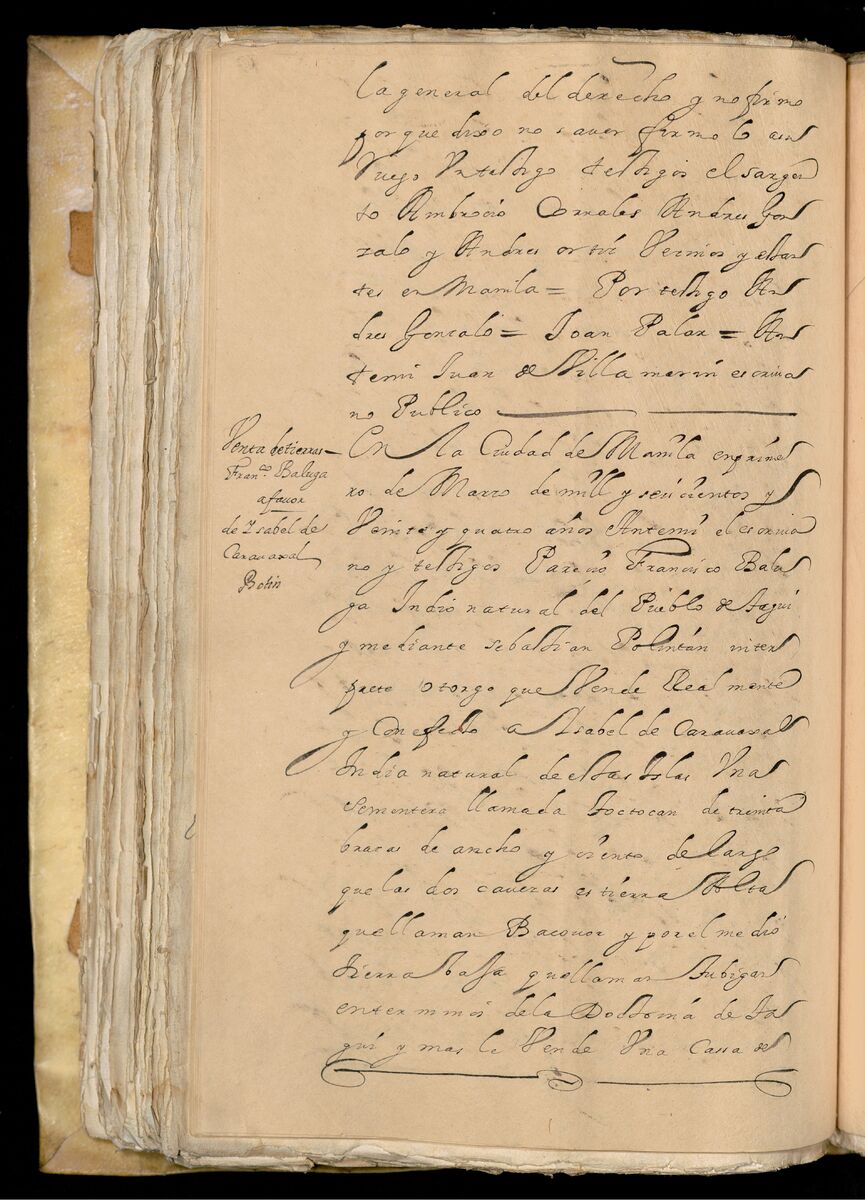 la general del derecho y no firmo
por que dixo no saver firmolo asu
Ruego Untestigo testigos el sargen
to Ambrocio Corrales Andres Gon
zalo y Andres ortiz Vecinos y estan
tes en Manila = Por testigo An
dres Gonzalo = Joan Palar = An
temi Juan de Villa marin escriva
no Publico
Venta de tierras
Franco. Baluga
a favor
de Ysabel de
Caravaxal
Botin
En la Ciudad de Manila en prime
ro de Marzo de mill y seiscientos y
Veinte y quatro años Antemi el escriva
no y testigos Parecio Francisco Balu
ga Indio natural del Pueblo de Tagui
y mediante sebastian Polintan inter
prete otorgo que Vende Real mente
y Con efecto a Isabel de Caravaxal
India natural de estas Islas Una
sementera llamada Toctocan de treinta
braças de ancho y ciento de largo
que las dos caveras es tierra Alta
que llaman Bacouor y por el medio
tierra baxa que llaman tubigan
enterminos de la de Ta
gui y mas le Vende Una Cassa de